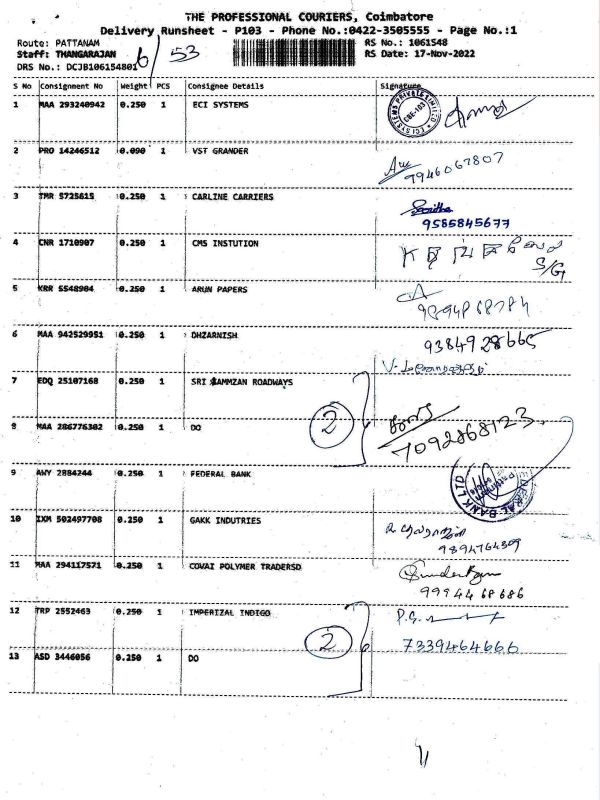 THE PROFESSIONAL COURIERS, Coimbatore
Delivery Runsheet - P103 - Phone No.:0422-3505555 - Page No.:1
Route: PATTANAM RS No.: 1061548
Staff: THANGARAJAN 6/53 RS Date: 17-Nov-2022
DRS No.: DCJB106154801
S No Consignment No Weight PCS Consignee Details Signature
1 MAA 293240942 0.250 1 ECI SYSTEMS
2 PRO 14246512 0.090 1 VST GRANDER
7946067807
3 TMR 5725615 0.250 1 CARLINE CARRIERS
9585845677
4 CNR 1710907 0.250 1 CMS INSTUTION
S/G
5 KRR 5548904 0.250 1 ARUN PAPERS
6 MAA 942529951 0.250 1 DHZARNISH 9384928665
7 EDQ 25107168 0.250 1 SRI RAMMZAN ROADWAYS
2
8 MAA 286776302 0.250 1 DO 7092868123
9 AWY 2884244 0.250 1 FEDERAL BANK
10 IXM 502497708 0.250 1 GAKK INDUTRIES
9894764309
11 MAA 294117571 0.250 1 COVAI POLYMER TRADERSD
9994468686
12 TRP 2552463 0.250 1 IMPERIZAL INDIGO
2 7339464666
13 ASD 3446056 0.250 1 DO